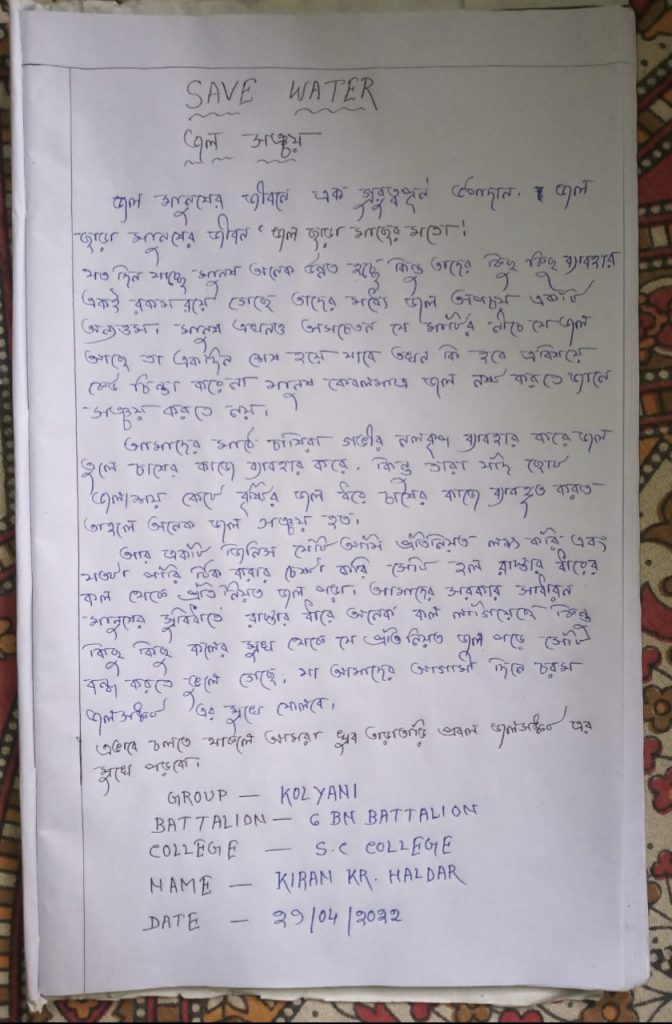 SAVE WATER
জল সঞ্চয়
জল মানুষের জীবনে এক গুরুত্বপূর্ন উপাদান। জল
ছাড়া মানুষের জীবন 'জল ছাড়া মাছের মতো!
যত দিন যাচ্ছে মানুষ অনেক উন্নত হচ্ছে কিন্তু তাদের কিছু কিছু ব্যাবহার
একই রকম রয়ে গেছে তাদের মধ্যে জল অপচয় একটি
অন্যতম। মানুষ এখনও অসচেতন যে মাটির নীচে যে জল
আছে তা একদিন শেষ হয়ে যাবে তখন কি হবে এবিষয়ে
কেউ চিন্তা করেনা মানুষ কেবলমাত্র জল নষ্ট করতে জানে
সঞ্চয় করতে নয়।
আমাদের মাঠে চাষিরা গভীর নলকূপ ব্যাবহার করে জল
তুলে চাষের কাজে ব্যাবহার করে, কিন্তু তাঁরা যদি ছোট
জলাশয় কেটে বৃষ্টির জল ধরে চাষের কাজে ব্যাবহৃত করত
তাহলে অনেক জল সঞ্চয় হত।
আর একটি জিনিস যেটি আমি প্রতিনিয়ত লক্ষ্য করি এবং
যতটা পারি ঠিক করার চেষ্টা করি সেটি হল রাস্তার ধারের
কল থেকে প্রতিনিয়ত জল পড়া। আমাদের সরকার সাধারন
মানুষের সুবিধার্তে রাস্তার ধারে অনেক কল লাগিয়েছে কিন্তু
কিছু কিছু কলের মুখ থেকে যে প্রতিনিয়ত জল পড়ে সেটি
বন্ধ করতে ভুলে গেছে, যা আমাদের আগামী দিনে চরম
জলসঙ্কট এর মুখে ফেলবে।
এভাবে চলতে থাকলে আমরা খুব তাড়াতাড়ি প্রবল জলসঙ্কট এর
মুখে পড়বো।
GROUP - KOLYANI
BATTALION - 6 BN BATTALION
COLLEGE - S.C COLLEGE
NAME - KIRAN KR. HALDAR
DATE - 29/04/2022